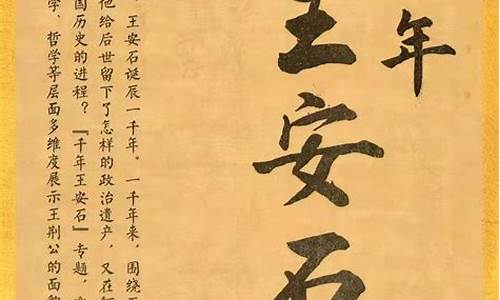 年
王安石
，王安石诞辰一千年。一千年来，围绕
他给后世留下了怎样的政治遗产，又在
国历史的进程？『千年王安石』专题，
学、哲学等层面多维度展示王荆公的面